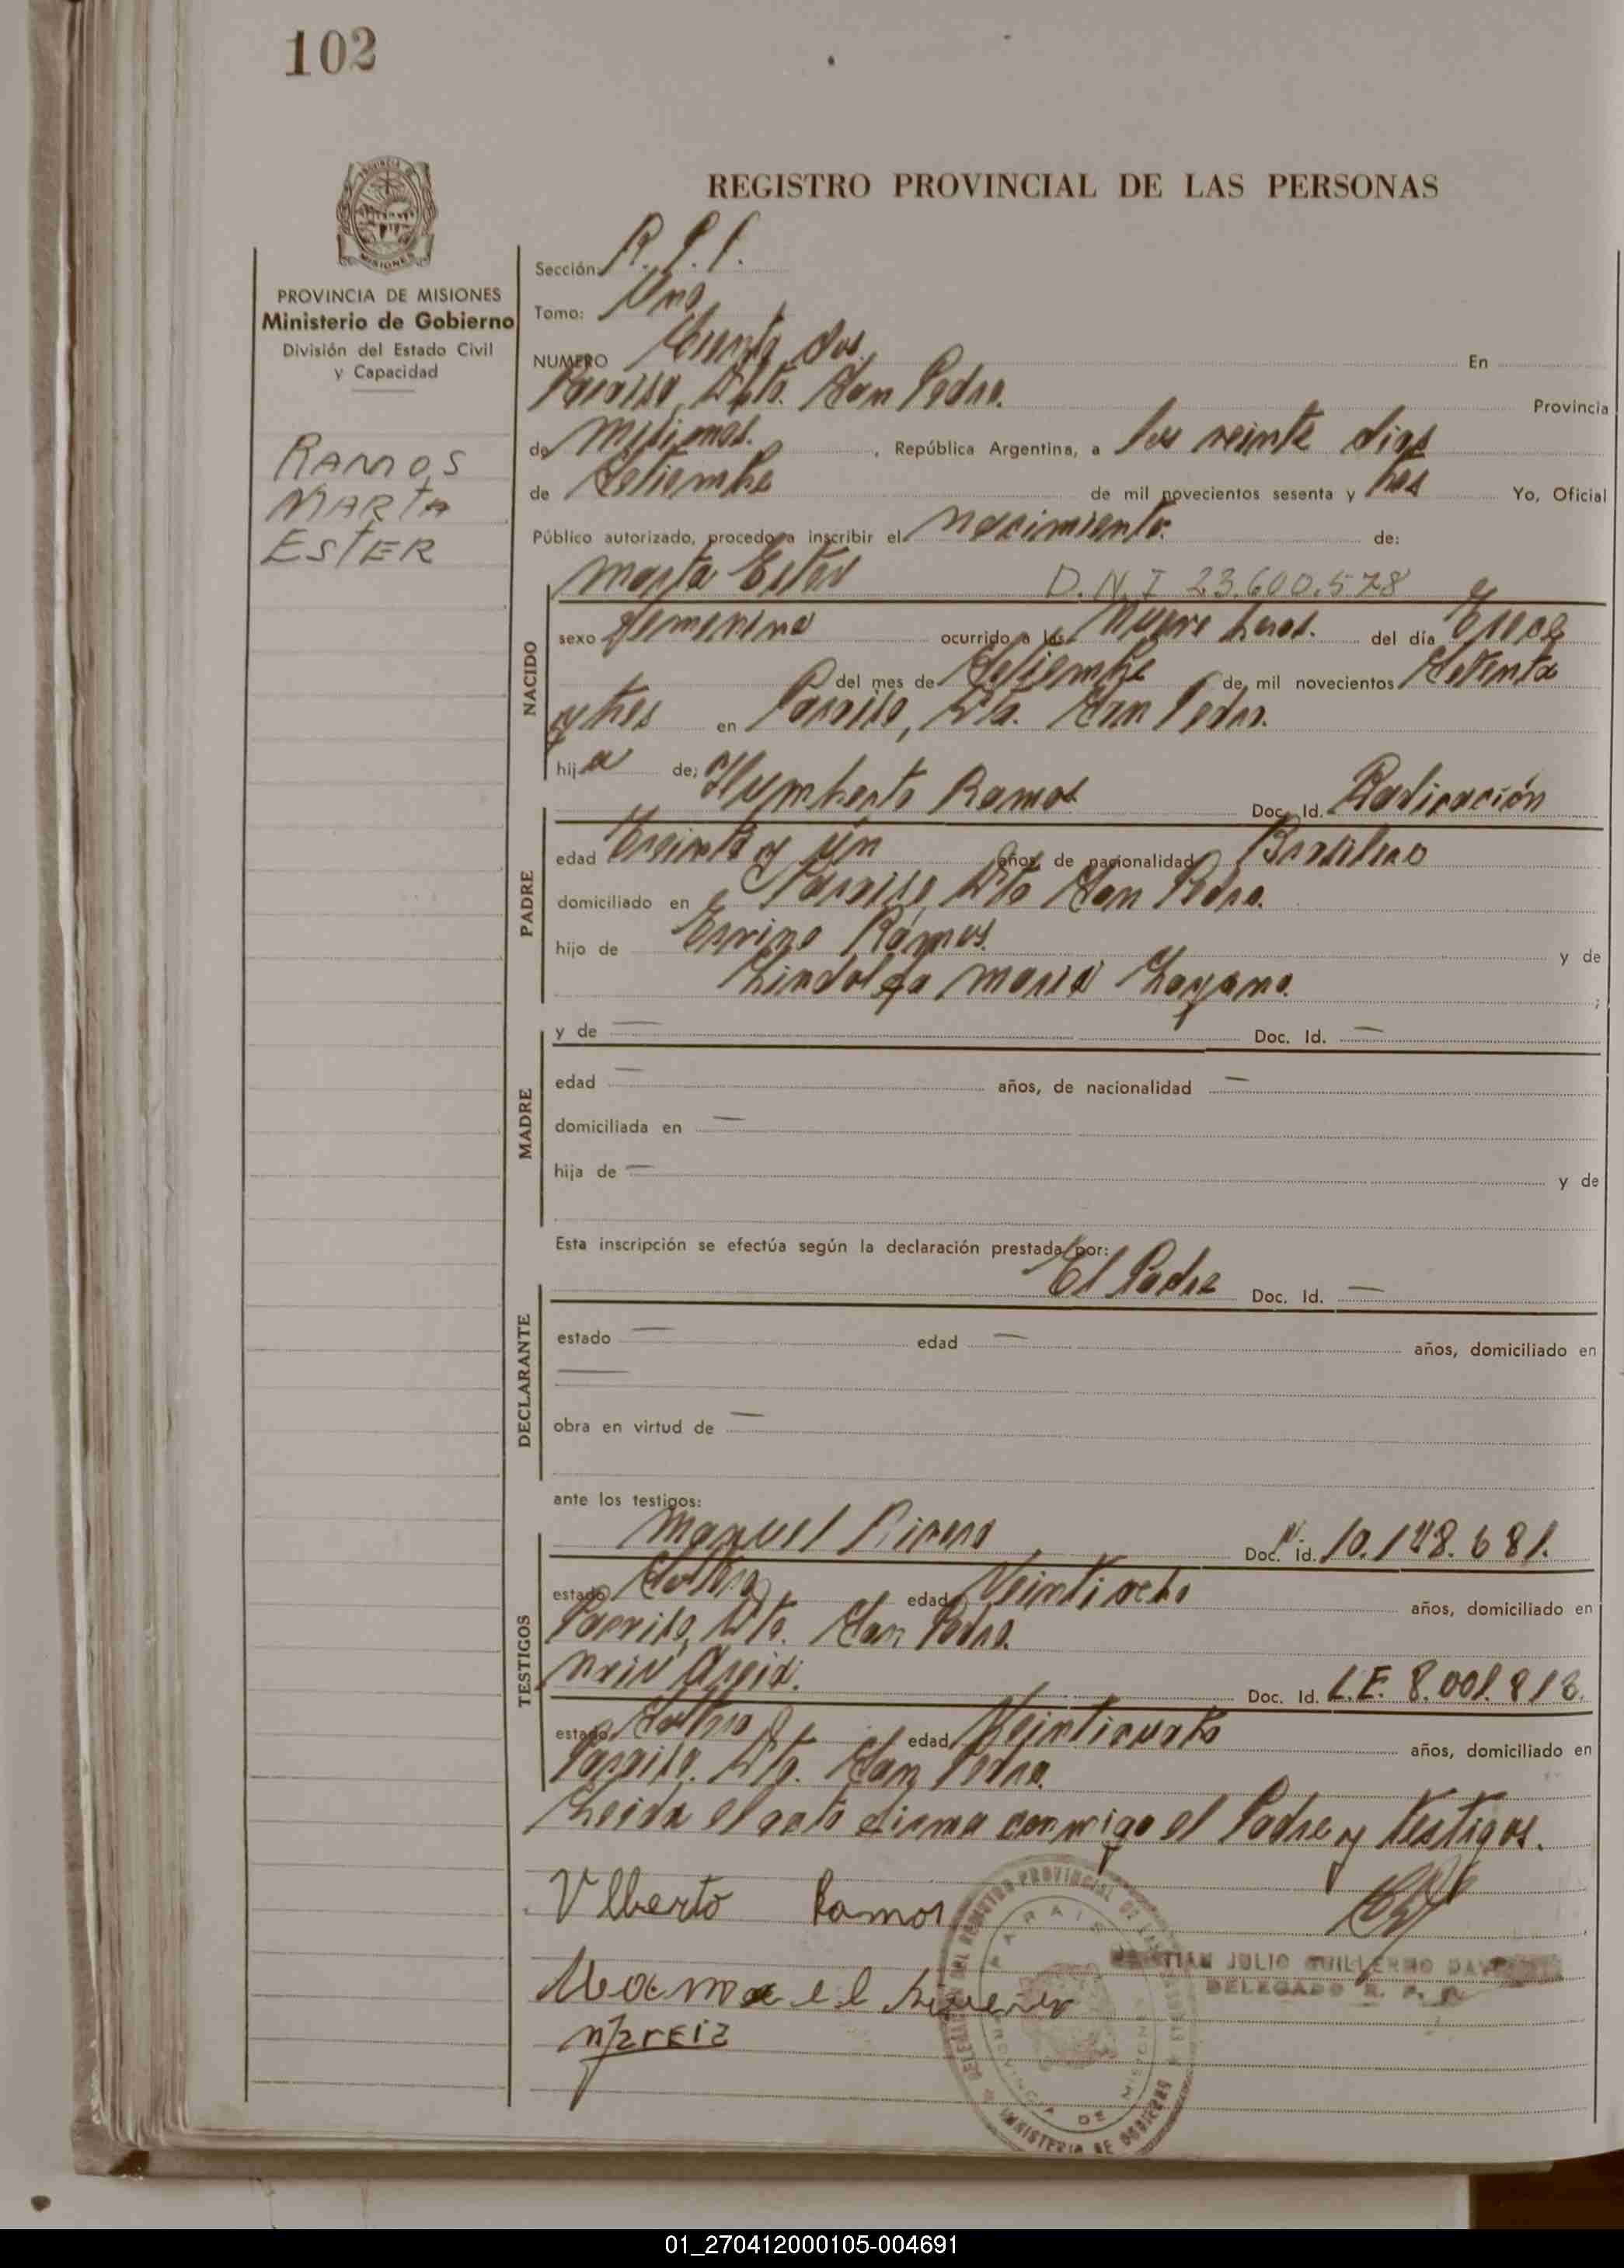 102
REGISTRO PROVINCIAL DE LAS PERSONAS
PROVINCIA DE MISIONES
Ministerio de Gobierno
División del Estado Civil
y Capacidad
RAMOS
MARTA
ESTER
Sección
Tomo: Uno
NUMERO dos. En
Paraiso, Dto. San Pedro. Provincia
de Misiones. , República Argentina, a los veinte dias
de Setiembre de mil novecientos sesenta y tres Yo, Oficial
Público autorizado, procedo a inscribir el nacimiento. de:
Marta Ester D.N.I 23.600.578
NACIDO
sexo femenino ocurrido a las nueve horas. del día Trece
del mes de Setiembre de mil novecientos setenta
y tres en Paraiso, Dto. San Pedro.
hija de; Humberto Ramos Doc. Id. Radicación
PADRE
edad Treinta y un años, de nacionalidad Brasilero
domiciliado en Paraiso, Dto San Pedro.
hijo de Ramos. y de
Maria ;
MADRE
y de — Doc. Id. —
edad — años, de nacionalidad —
domiciliada en —
hija de — y de
Esta inscripción se efectúa según la declaración prestada por:
El Padre Doc. Id. —
DECLARANTE
estado — edad — años, domiciliado en
—
obra en virtud de —
ante los testigos:
Manuel Doc. Id. 10.148.681.
TESTIGOS
estado Soltero edad Veintiocho años, domiciliado en
Paraiso, Dto. San Pedro.
Doc. Id. L.E. 8.001.813.
estado Soltero edad Veinticuatro años, domiciliado en
Paraiso. Dto. San Pedro.
Leida el acta firma conmigo el Padre y testigos.
Vlberto Ramos
JULIO GUILLERMO
DELEGADO R. P. P.
PROVINCIA DE MISIONES
MINISTERIO DE GOBIERNO
01_270412000105-004691